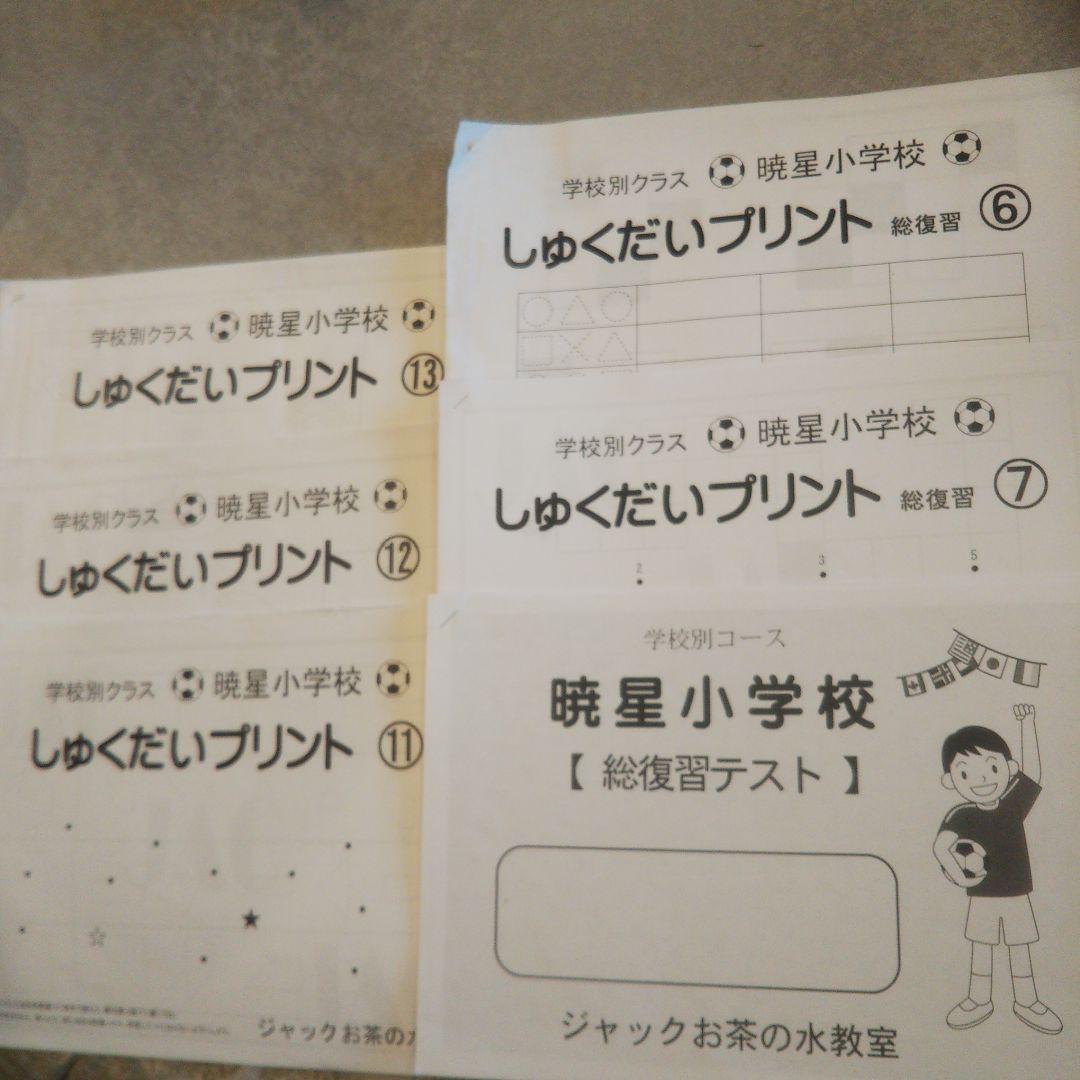 学校別クラス 暁星小学校
しゅくだいプリント 総復習 ⑥
学校別クラス 暁星小学校
しゅくだいプリント 総復習 ⑦
2 3 5
学校別コース
暁星小学校
【 総復習テスト 】
ジャックお茶の水教室
学校別クラス 暁星小学校
しゅくだいプリント ⑬
学校別クラス 暁星小学校
しゅくだいプリント ⑫
学校別クラス 暁星小学校
しゅくだいプリント ⑪
ジャックお茶の水